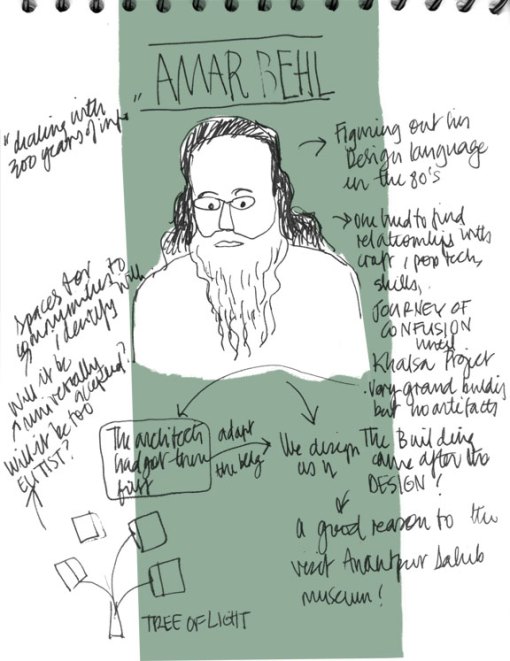 AMAR BEHL
"dealing with
300 years of info
→ Figuring out his
Design language
in the 80's
→ one had to find
relationships with
craft, pop tech,
skills,
JOURNEY OF
CONFUSION
until
Khalsa Project
very grand building
but no artifacts
The Building
came after the
DESIGN!
Spaces for
communities to
identify with
Will it be
universally
accepted?
Will it be too
ELITIST?
The architects
had got there
first
adapt
the bldg
We design
as is
a good reason to
visit Anantpur Sahib
museum!
TREE OF LIGHT